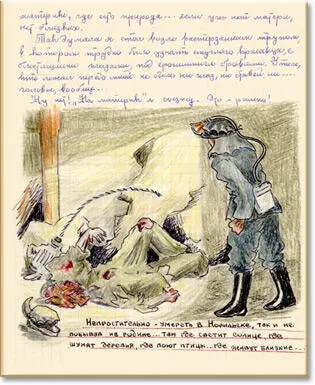 материке, где его природа... если уже нет матери,
нет близких.
Так думала я стоя возле растерзанного трупа,
в котором трудно было узнать смуглого красавца с
блестящими глазами, под сросшимися бровями. У тела,
что лежал передо мной не было ни глаз, ни бровей ни...
головы, вообще...
Ну нет! „На материк" я поеду. Это - решено!
Непростительно - умереть в Норильске, так и не
побывав на родине... там где светит солнце, где
шумят деревья, где поют птицы... где живут близкие...